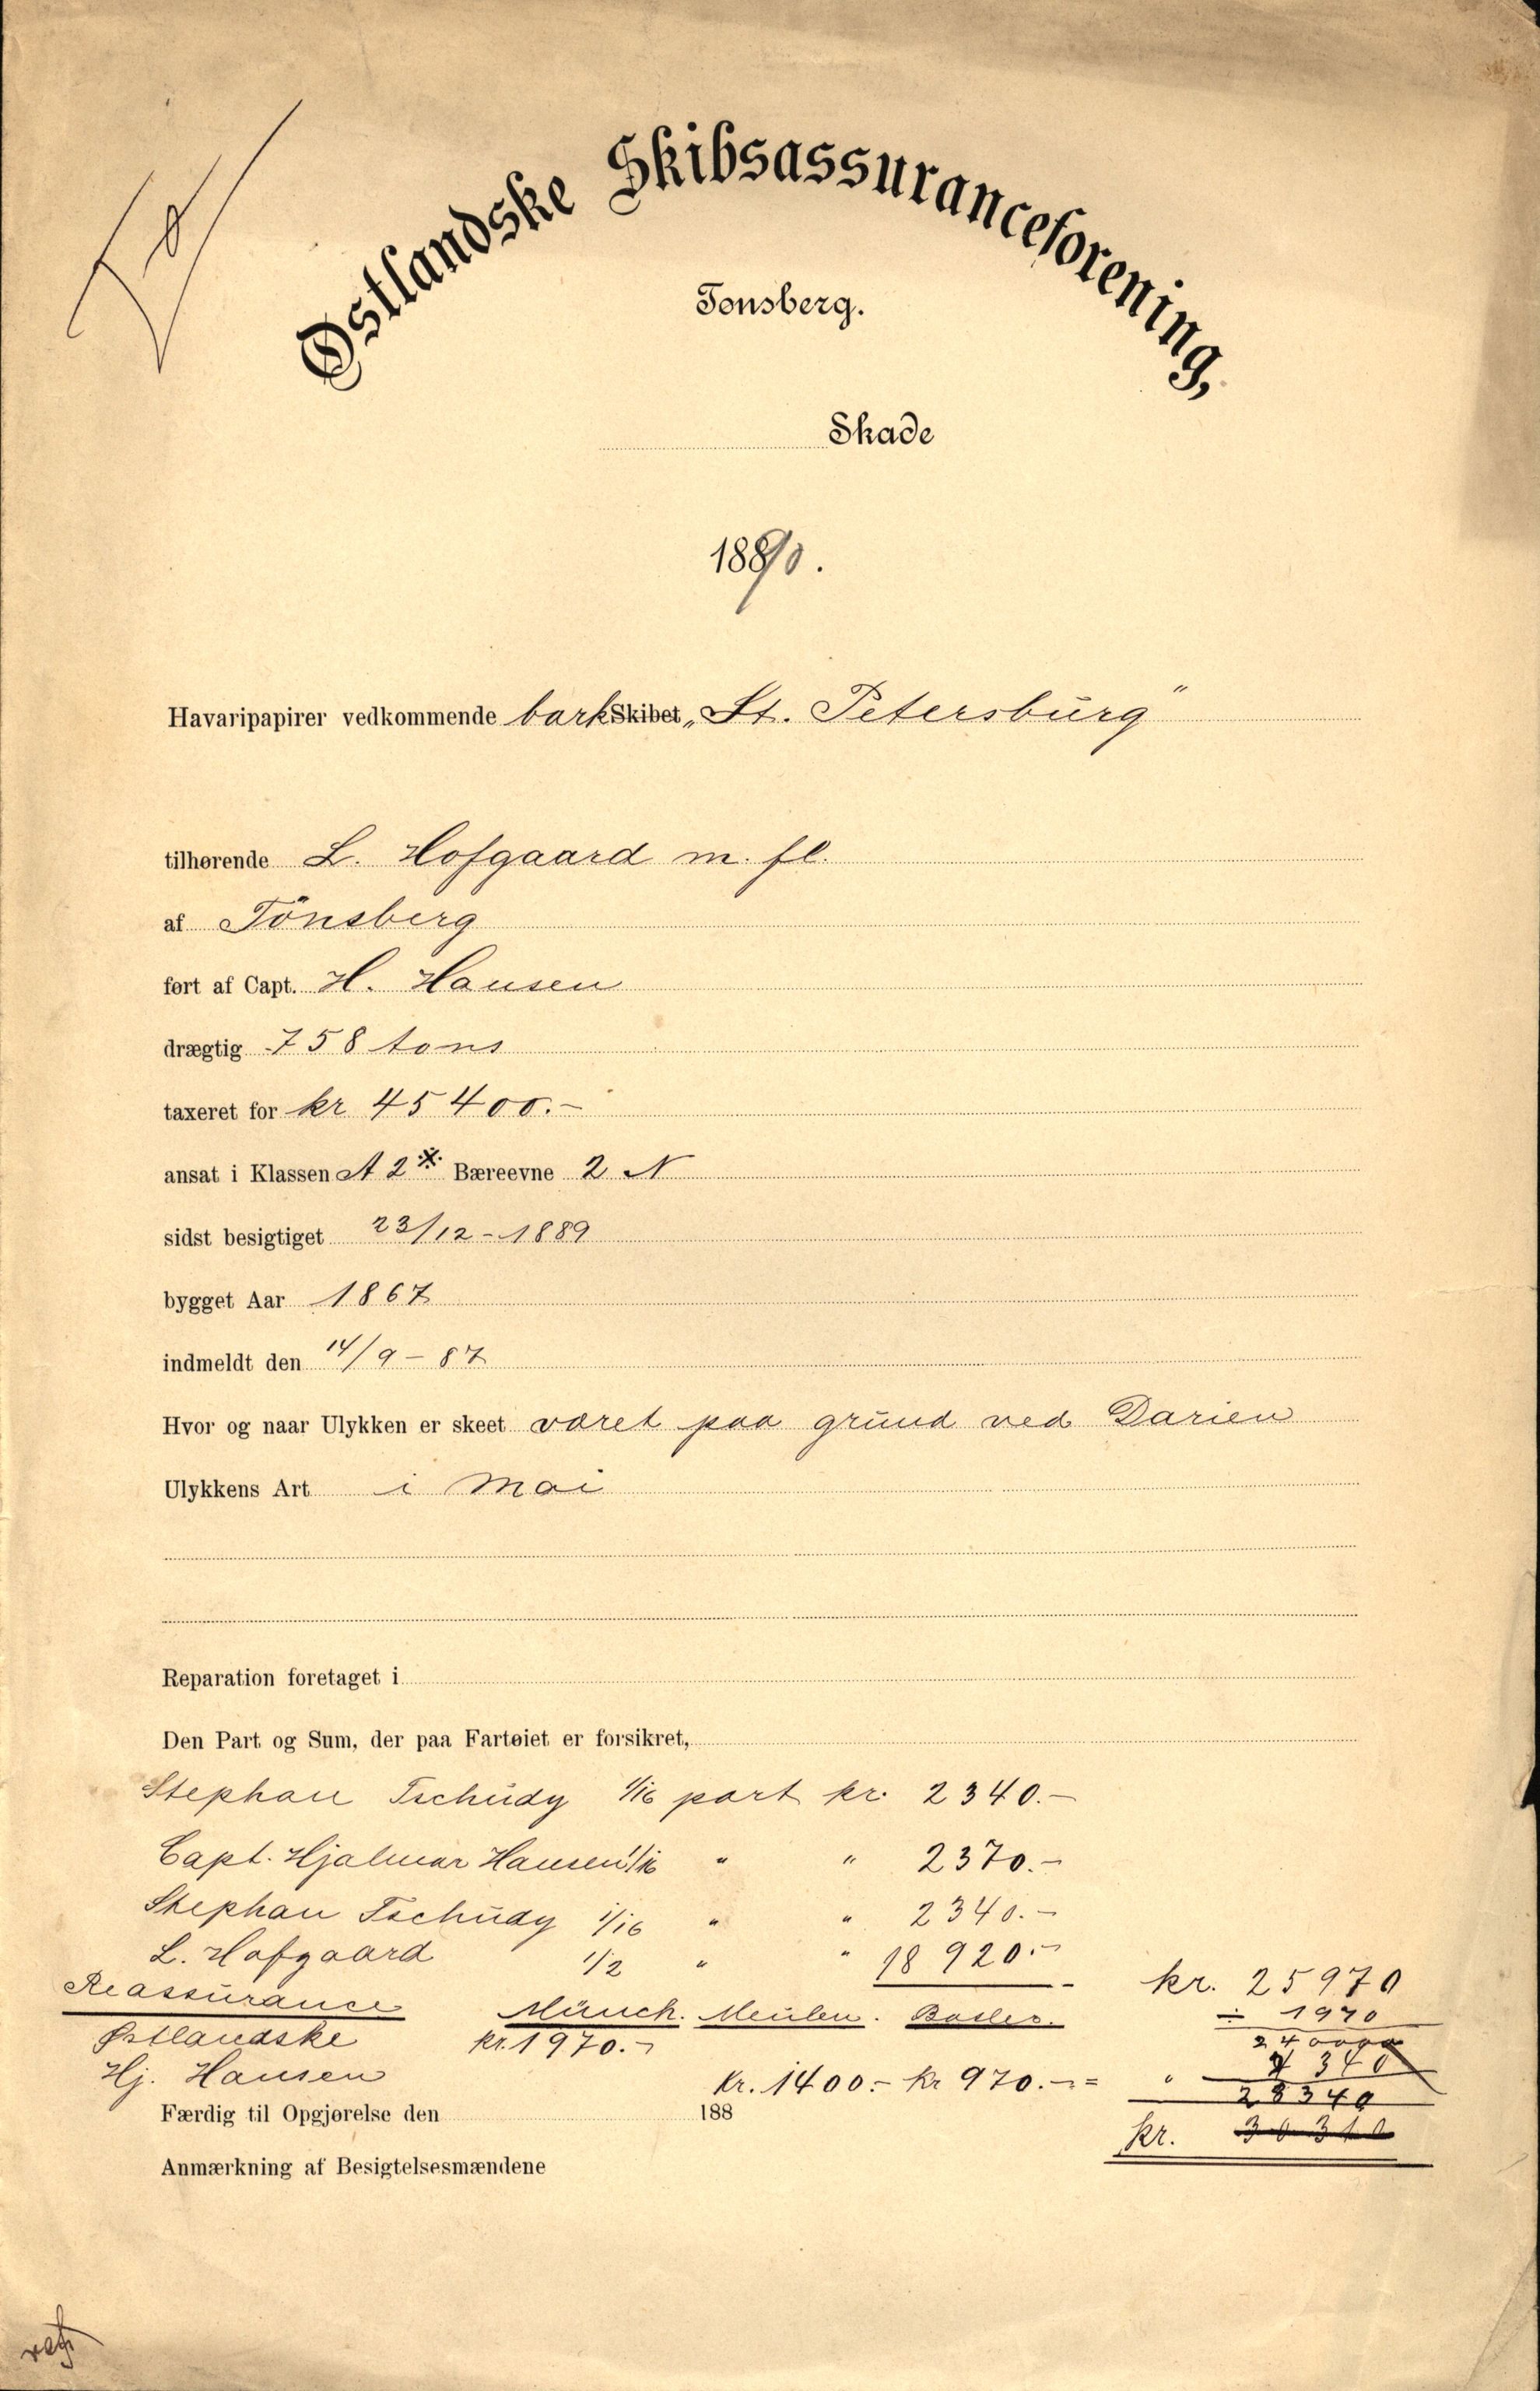 Østlandske Skibsassuranceforening,
Tønsberg.
Skade
1890.
Havaripapirer vedkommende barkSkibet „St. Petersburg"
tilhørende L. Hofgaard m. fl.
af Tönsberg
ført af Capt. H. Hansen
drægtig 758 tons
taxeret for kr 45400.-
ansat i Klassen A 2 Bæreevne 2 N
sidst besigtiget 23/12-1889
bygget Aar 1867
indmeldt den 14/9-87
Hvor og naar Ulykken er skeet været paa grund ved Darien
Ulykkens Art i Mai
Reparation foretaget i
Den Part og Sum, der paa Fartøiet er forsikret,
Stephan Tschudy 1/16 part kr. 2340.-
Capt. Hjalmar Hansen 1/16 " " 2370.-
Stephan Tschudy 1/16 " " 2340.-
L. Hofgaard 1/2 " " 18920.- kr. 25970
Reassurance Münch. Meulen. Basler. ÷ 1970
Østlandske kr. 1970.- 24000
Hj. Hansen kr. 1400.- kr 970.- = "
28340
Færdig til Opgjørelse den 188
kr.
Anmærkning af Besigtelsesmændene